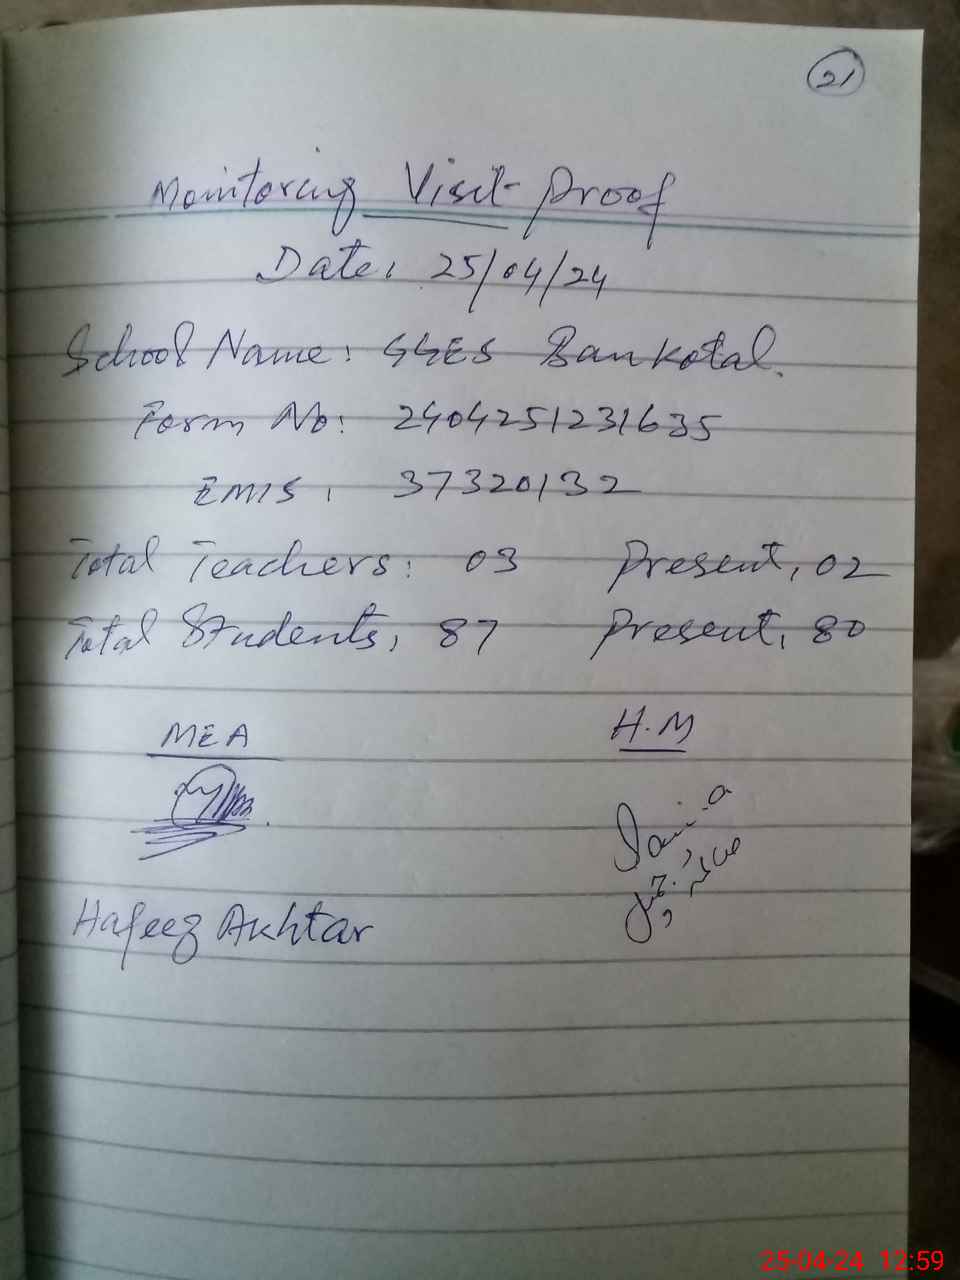 21
Monitoring Visit Proof
Date: 25/04/24
School Name: GGES Bankotal.
Form No: 2404251231635
EMIS: 37320132
Total Teachers: 03 Present: 02
Total Students: 87 Present: 80
MEA H.M
Hafeez Akhtar
25-04-24 12:59